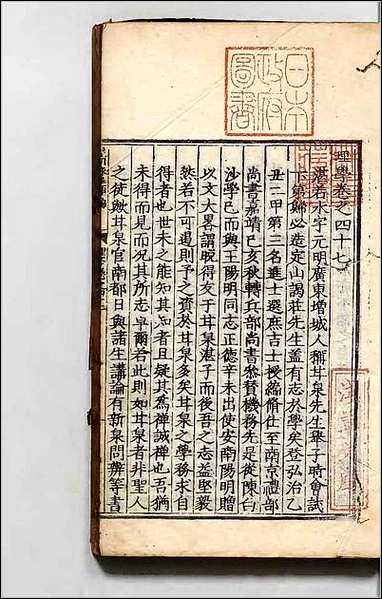 日本
政府
圖書
理學卷之四十七
湛若水字元明廣東增城人稱甘泉先生舉子時會試
下第歸必造定山謁莊先生蓋有志於學矣登弘治乙
丑二甲第三名進士選庶吉士授編脩仕至南京禮部
尚書嘉靖己亥秋轉兵部尚書叅賛機務先是從陳白
沙學已而與王陽明同志正德辛未出使安南陽明贈
以文大畧謂晚得友于甘泉湛子而後吾之志益堅毅
然若不可遏則予之資於甘泉多矣甘泉之學務求自
得者也世未之能知其知者且疑其爲禪誠禪也吾猶
未得而見而况其所志卓爾若此則如甘泉者非聖人
之徒歟甘泉官南都日與諸生講論有新泉問辨等書